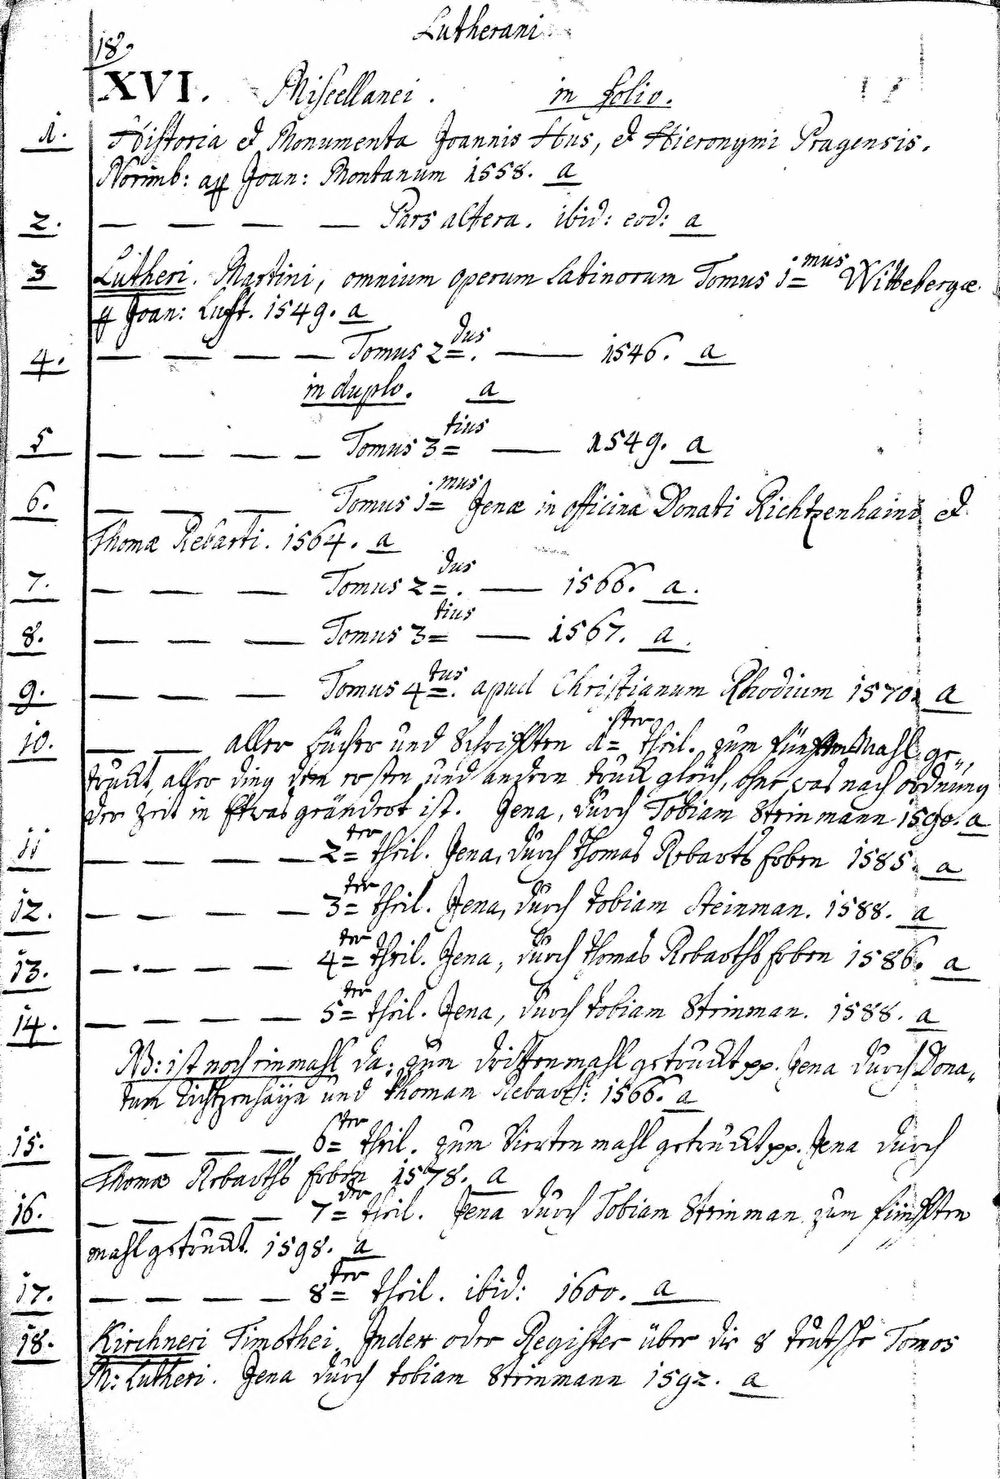 Lutherani
18.
XVI. Miscellanei. in folio.
1. Historia et Monumenta Joannis Hus, et Hieronymi Pragensis.
Norimb: ap Joan: Montanum 1558. a
2. — — — — Pars altera. ibid: eod: a
3 Lutheri. Martini, omnium operum Latinorum Tomus i=mus Wittebergæ.
Joan: Lufft. 1549. a
4. — — — — Tomus 2=dus. — 1546. a
in duplo. a
5 — — — — Tomus 3=tius — 1549. a
6. — — — Tomus i=mus Jenæ in officina Donati Richtzenhaini et
Thomæ Rebarti. 1564. a
7. — — — Tomus 2=dus. — 1566. a.
8. — — — Tomus 3=tius — 1567. a.
9. — — — Tomus 4=tus. apud Christianum Rhodium 1570. a
10. — — aller bücher und Schrifften 1=ster theil. zum fünfften Mahl ge„
truckt, aller ding dem ersten und andern truck gleich, ohne was nach ordnung
der Zeit in Etwas geändert ist. Jena, durch Tobiam Steinmann 1590. a
11 — — — — 2=ter theil. Jena, durch Thomas Rebarts Erben 1585. a
12. — — — — 3=ter theil. Jena, durch tobiam Steinman. 1588. a
13. — — — — 4=ter theil. Jena, durch Thomas Rebarths Erben 1586. a
14. — — — — 5=ter theil. Jena, durch tobiam Steinman. 1588. a
NB: ist noch einmahl da: zum drittenmahl getruckt pp. Jena durch Dona„
tum Richtzenhayn und Thomam Rebarth: 1566. a
15. — — — — 6=ter theil. zum Vierten mahl getruckt pp. Jena durch
Thomæ Rebarths Erben 1578. a
16. — — — — 7=der theil. Jena durch Tobiam Steinman zum fünfften
mahl getruckt. 1598. a
17. — — — — 8=ter theil. ibid: 1600. a
18. Kirchneri Timothei, Index oder Register über die 8 teutsche Tomos
M: Lutheri. Jena durch tobiam Steinmann 1592. a